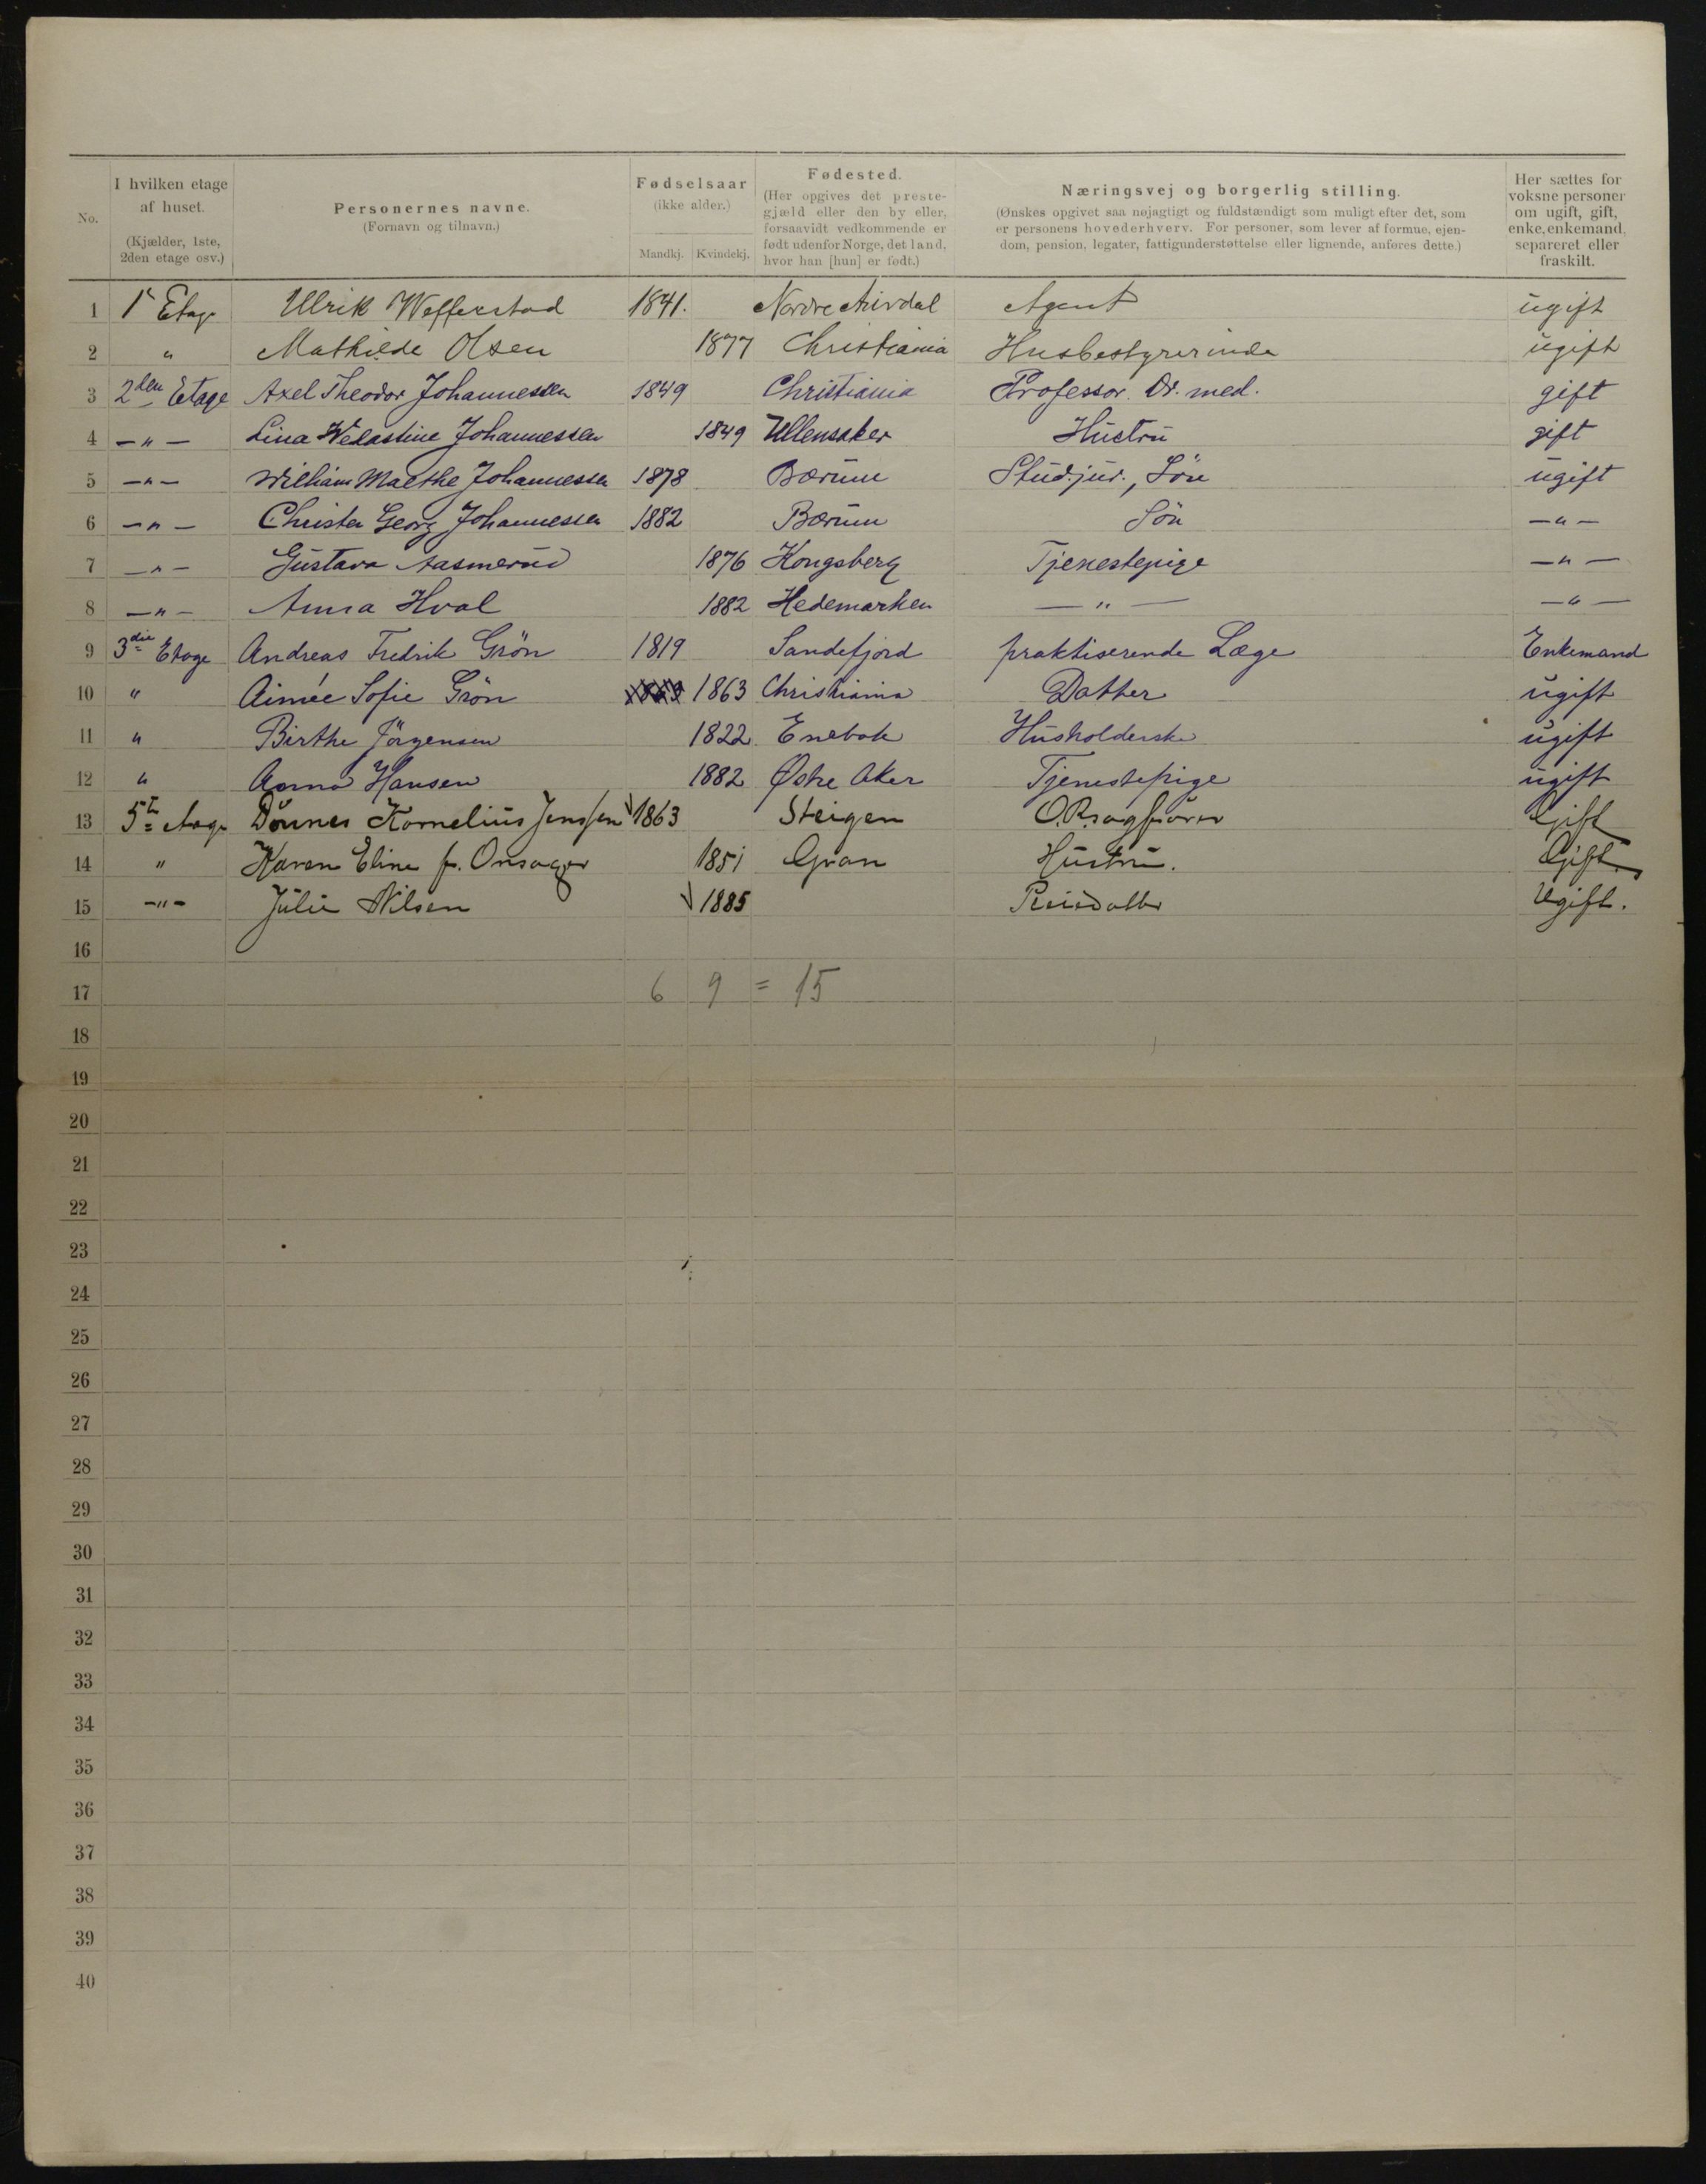 No.
I hvilken etage
af huset.
(Kjælder, 1ste,
2den etage osv.)
Personernes navne.
(Fornavn og tilnavn.)
Fødselsaar
(ikke alder.)
Mandkj. Kvindekj.
Fødested.
(Her opgives det preste-
gjæld eller den by eller,
forsaavidt vedkommende er
født udenfor Norge, det land,
hvor han [hun] er født.)
Næringsvej og borgerlig stilling.
(Ønskes opgivet saa nøjagtigt og fuldstændigt som muligt efter det, som
er personens hovederhverv. For personer, som lever af formue, ejen-
dom, pension, legater, fattigunderstøttelse eller lignende, anføres dette.)
Her sættes for
voksne personer
om ugift, gift,
enke, enkemand,
separeret eller
fraskilt.
1 1e Etage Ulrik 1841. Nordre Agent ugift
2 " Mathilde Olsen 1877 Christiania Husbestyrerinde ugift
3 2den Etage Axel Theodor Johannessen 1849 Christiania Professor. Dr. med. gift
4 -"- Lina Johannessen 1849 Ullensaker Hustru gift
5 -"- Wilhelm Maethe Johannessen 1878 Bærum Stud.jur., Sön ugift
6 -"- Christen Georg Johannessen 1882 Bærum Sön -"-
7 -"- Gustava Aasmerud 1876 Kongsberg Tjenestepige -"-
8 -"- Anna Hval 1882 Hedemarken -"- -"-
9 3die Etage Andreas Fredrik Grön 1819 Sandefjord praktiserende Læge Enkemand
10 " Aimée Sofie Grön 1863 Christiania Datter ugift
11 " Birthe Jörgensen 1822 Enebak Husholderske ugift
12 " Anna Hansen 1882 Østre Aker Tjenestepige ugift
13 5te Dönnes Kornelius Jenssen 1863 Steigen O.R.sagförer Gift
14 " Karen Eline f. Onsager 1851 Gran Hustru. Gift
15 -"- Julie Nilsen 1885 Pleiedatter Ugift.
16
17 6 9 = 15
18
19
20
21
22
23
24
25
26
27
28
29
30
31
32
33
34
35
36
37
38
39
40